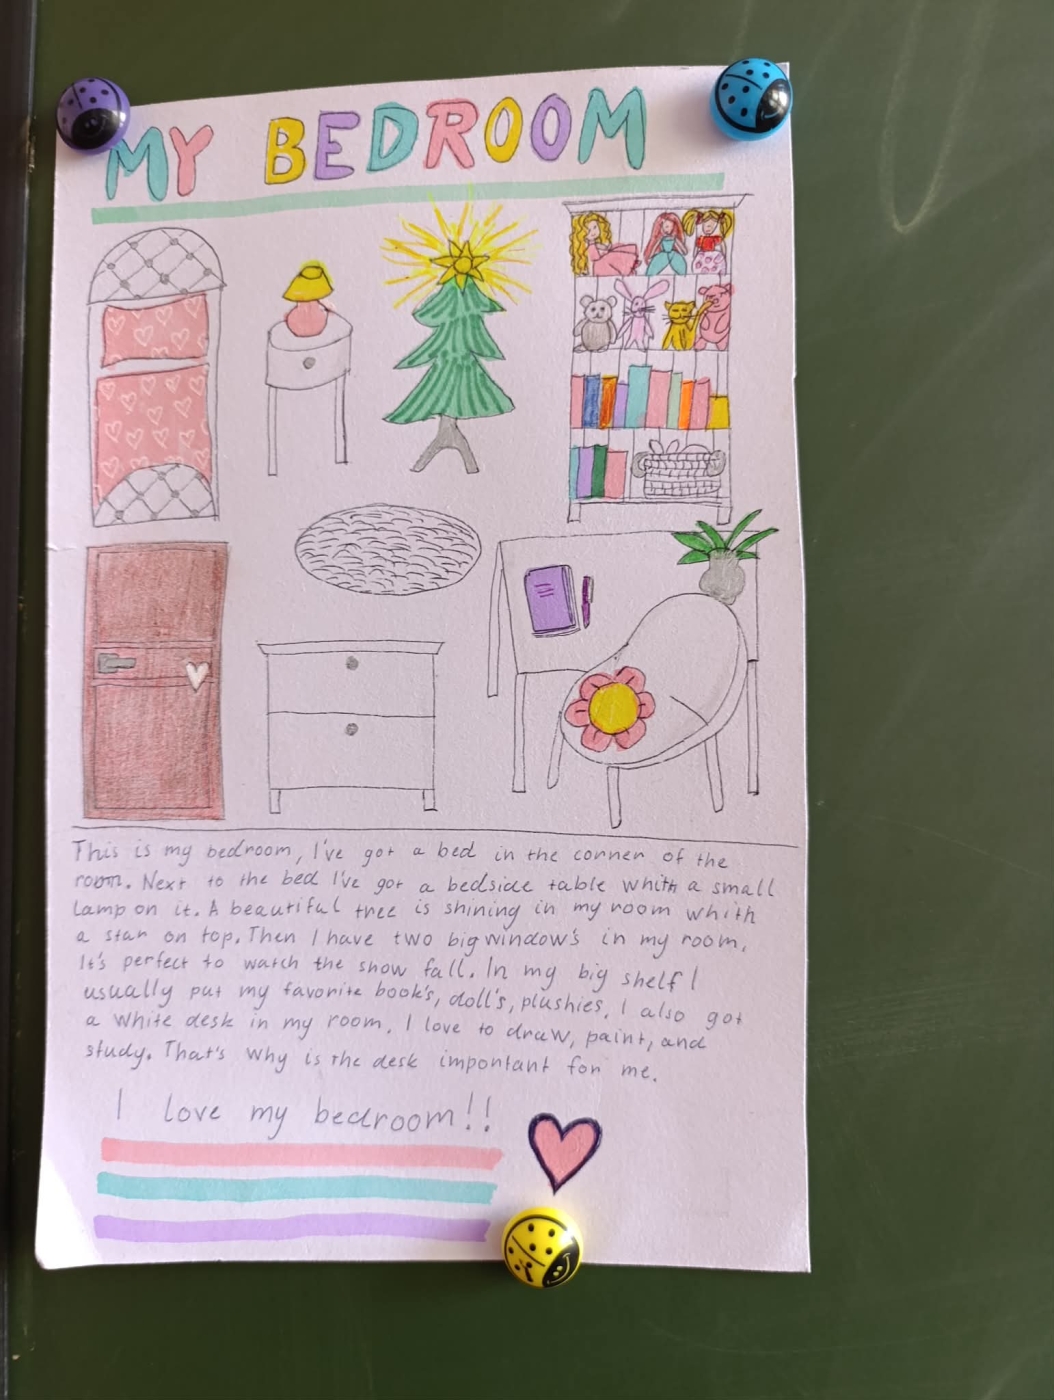 MY BEDROOM
This is my bedroom, I've got a bed in the corner of the
room. Next to the bed I've got a bedside table whith a small
lamp on it. A beautiful tree is shining in my room whith
a star on top. Then I have two big window's in my room.
It's perfect to watch the snow fall. In my big shelf I
usually put my favorite book's, doll's, plushies. I also got
a white desk in my room. I love to draw, paint, and
study. That's why is the desk important for me.
I love my bedroom!!